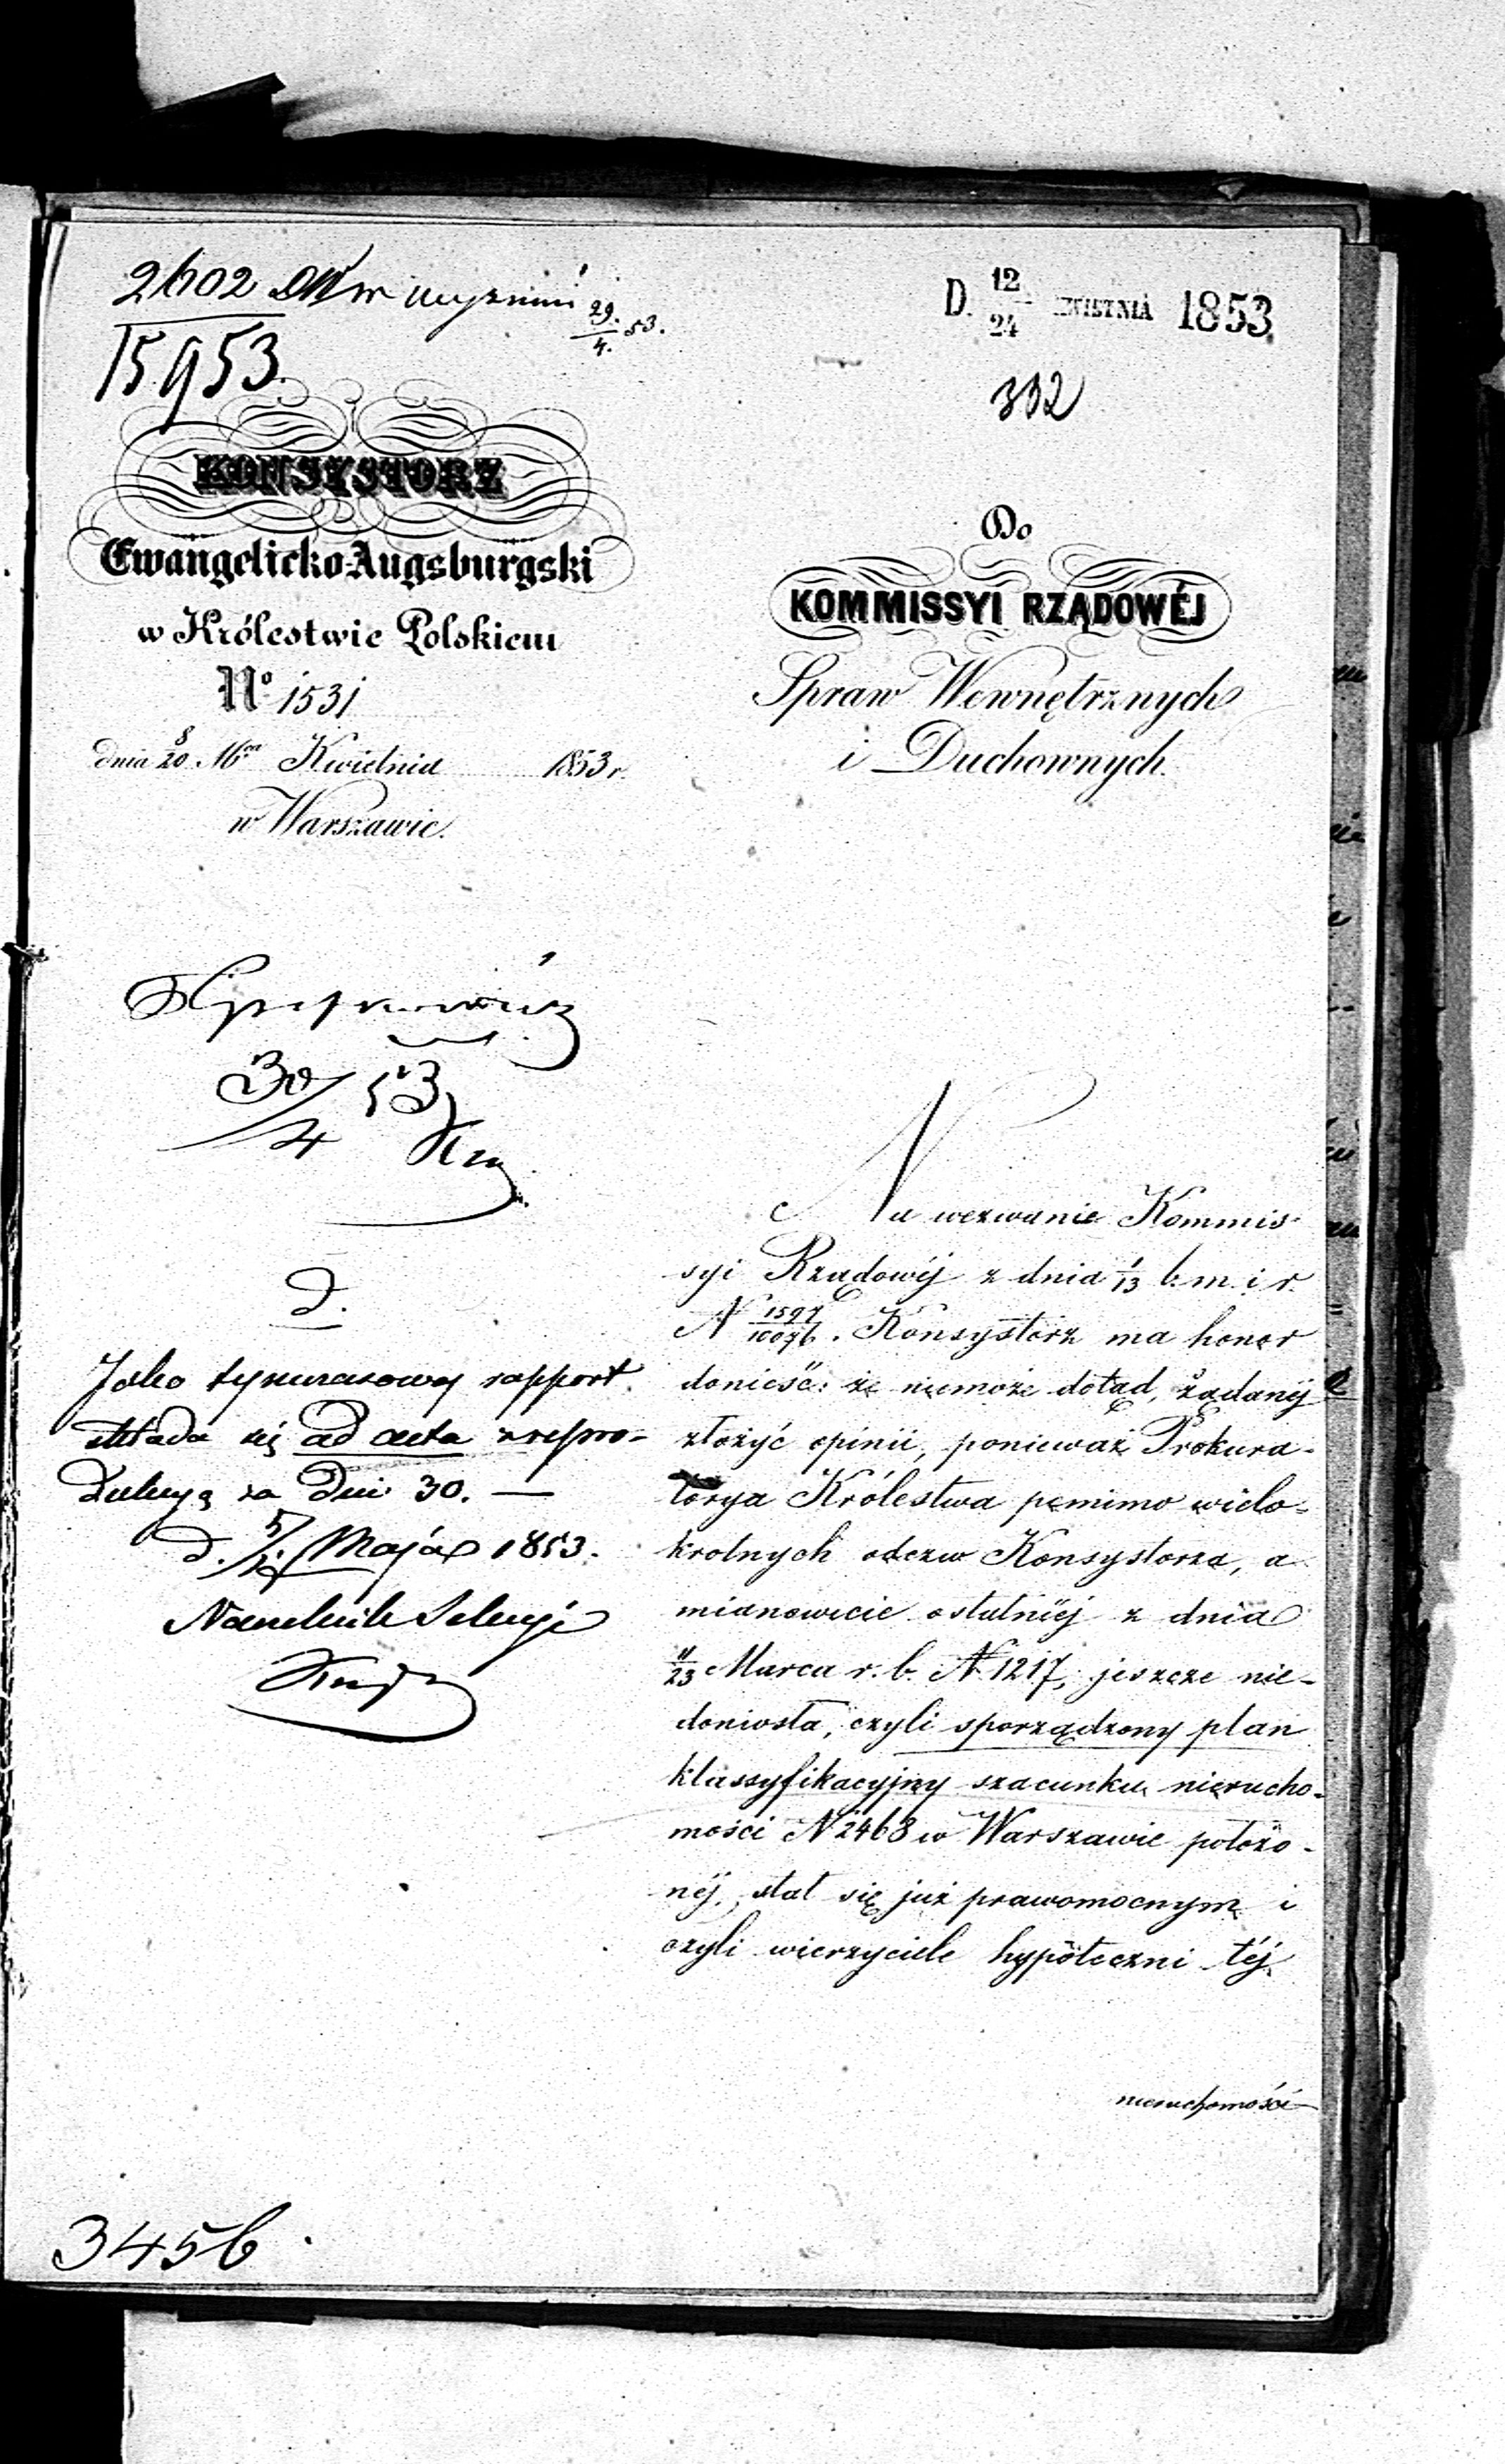 2602
15953
29./4. 53.
D. 12/24 KWIETNIA 1853
392
KONSYSTORZ
Ewangelicko-Augsburgski
w Królestwie Polskiem
No 1531
dnia 8/20 Mca Kwietnia 1853 r.
w Warszawie.
Do
KOMMISSYI RZĄDOWÉJ
Spraw Wewnętrznych
i Duchownych.
30/4 53
D.
Jako tymczasowy rapport
składa się ad acta z repro-
dukcyą za Dni 30. —
d. Maja 1853.
Naczelnik Sekcyi
Na wezwanie Kommis-
syi Rządowéj z dnia 1/13 b. m. i r.
N 1597/10076. Konsystorz ma honor
donieść: że niemoże dotąd, żądanéj
złożyć opinii, ponieważ Prokura-
torya Królestwa pomimo wielo-
krotnych odezw Konsystorza, a
mianowicie ostatniéj z dnia
11/23 Marca r. b. N 1217, jeszcze nie-
doniosła, czyli sporządzony plan
klassyfikacyjny szacunku nierucho-
mości N 2468 w Warszawie położo-
néj, stał się już prawomocnym i
czyli wierzyciele hypoteczni téj
nieruchomości
3456